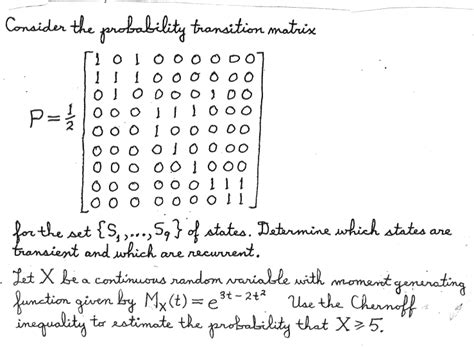 Consider the probability transition matrix
1 0 1 0 0 0 0 0 0
1 1 1 0 0 0 0 0 0
0 1 0 0 0 0 1 0 0
0 0 0 1 1 1 0 0 0
P = 1/2
0 0 0 1 0 0 0 0 0
0 0 0 0 1 0 0 0 0
0 0 0 0 0 1 0 0 0
0 0 0 0 0 0 1 1 1
0 0 0 0 0 0 0 1 1
for the set {S₁,...,S₉} of states. Determine which states are
transient and which are recurrent.
Let X be a continuous random variable with moment generating
function given by Mₓ(t) = e^{3t-2t²} Use the Chernoff
inequality to estimate the probability that X ⩾ 5.